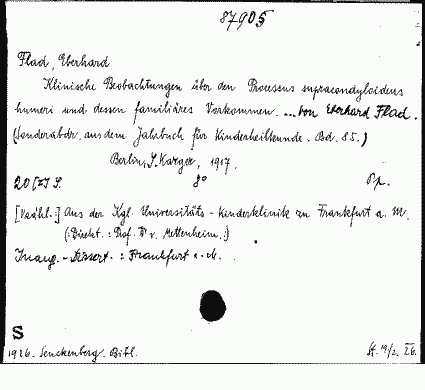 87905
Flad, Eberhard
Klinische Beobachtungen über den Processus supracondyloideus
humeri und dessen familiäres Vorkommen. ... von Eberhard Flad.
(Sonderabdr. aus dem Jahrbuch für Kinderheilkunde. Bd. 85.)
Berlin, S. Karger, 1917.
20 S. 8° Pp.
Aus der Kgl. Universitäts-Kinderklinik zu Frankfurt a. M.
(: Direkt. : Prof. Dr v. Mettenheim. :)
Inaug.-Dissert. : Frankfurt a. M.
S
1926. Senckenberg. Bibl. St. 19/2. 26.